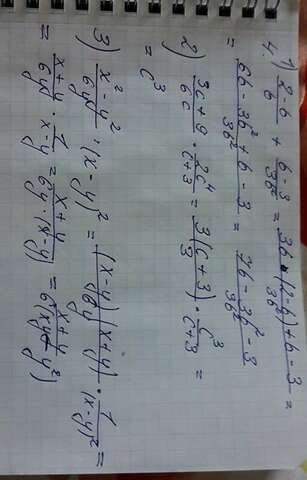 4. 1) (2-b)/b + (b-3)/3b² = (3b·(2-b)+b-3)/3b² =
= (6b-3b²+b-3)/3b² = (7b-3b²-3)/3b²
2) (3c+9)/6c · 2c⁴/(c+3) = 3(c+3)/3 · c³/(c+3) =
= c³
3) (x²-y²)/6y : (x-y)² = (x-y)(x+y)/6y · 1/(x-y)² =
= (x+y)/6y · 1/(x-y) = (x+y)/6y·(x-y) = (x+y)/6(xy-y²)